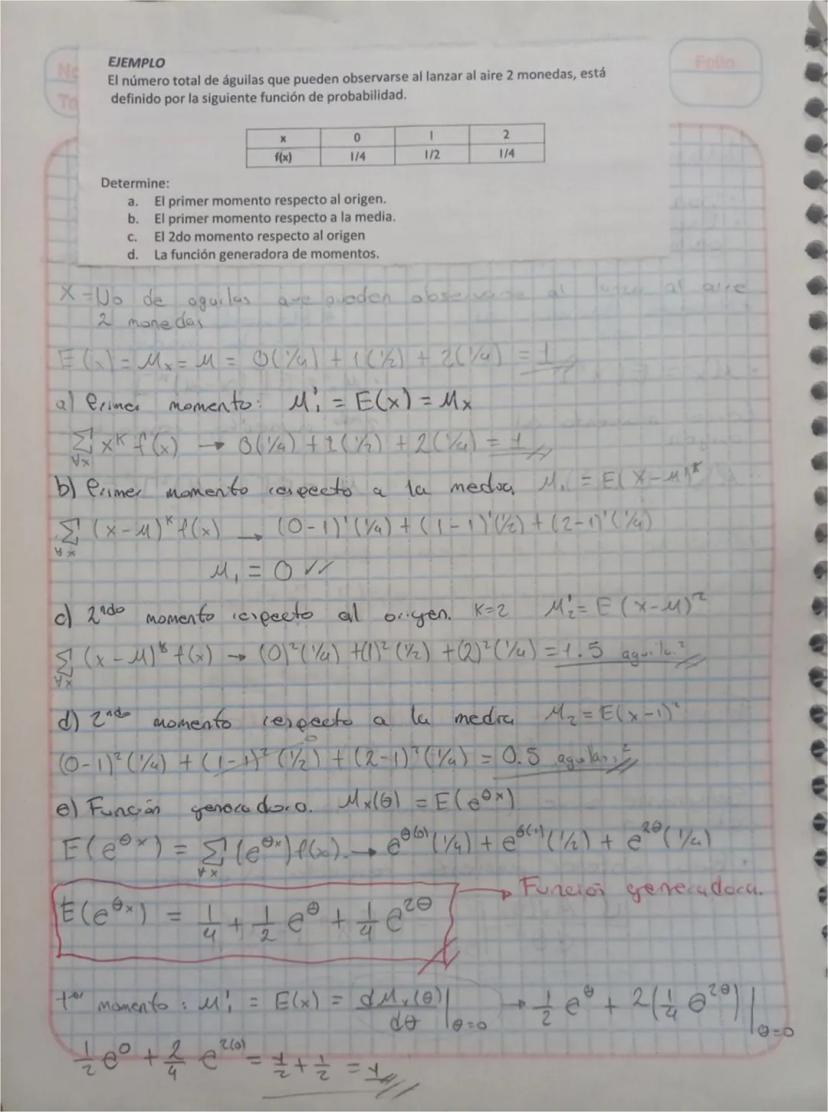 No
To
Folio
EJEMPLO
El número total de águilas que pueden observarse al lanzar al aire 2 monedas, está
definido por la siguiente función de probabilidad.
x 0 1 2
f(x) 1/4 1/2 1/4
Determine:
a. El primer momento respecto al origen.
b. El primer momento respecto a la media.
c. El 2do momento respecto al origen
d. La función generadora de momentos.
X = No de aguilas que pueden observarse al lanzar al aire
2 monedas
E(x) = μx = μ = 0(1/4) + 1(1/2) + 2(1/4) = 1
a) Primer momento: μ'₁ = E(x) = μx
∑∀x x^k f(x) → 0(1/4) + 1(1/2) + 2(1/4) = 1
b) Primer momento respecto a la media μ₁ = E(x-μ)^k
∑∀x (x-μ)^k f(x) → (0-1)¹(1/4) + (1-1)¹(1/2) + (2-1)¹(1/4)
μ₁ = 0
c) 2ndo momento respecto al origen. K=2 μ'₂ = E(x-μ)²
∑∀x (x-μ)^k f(x) → (0)²(1/4) + (1)²(1/2) + (2)²(1/4) = 1.5 aguila.²
d) 2ndo momento respecto a la media μ₂ = E(x-1)²
(0-1)²(1/4) + (1-1)²(1/2) + (2-1)²(1/4) = 0.5 aguilas²
e) Función generadora. Mx(θ) = E(e^θx)
E(e^θx) = ∑∀x (e^θx) f(x) → e^θ(0)(1/4) + e^θ(1)(1/2) + e^2θ(1/4)
E(e^θx) = 1/4 + 1/2 e^θ + 1/4 e^2θ → Función generadora.
1er momento: μ'₁ = E(x) = dMx(θ)/dθ |θ=0 → 1/2 e^θ + 2(1/4 e^2θ) |θ=0
1/2 e^0 + 2/4 e^2(0) = 1/2 + 1/2 = 1